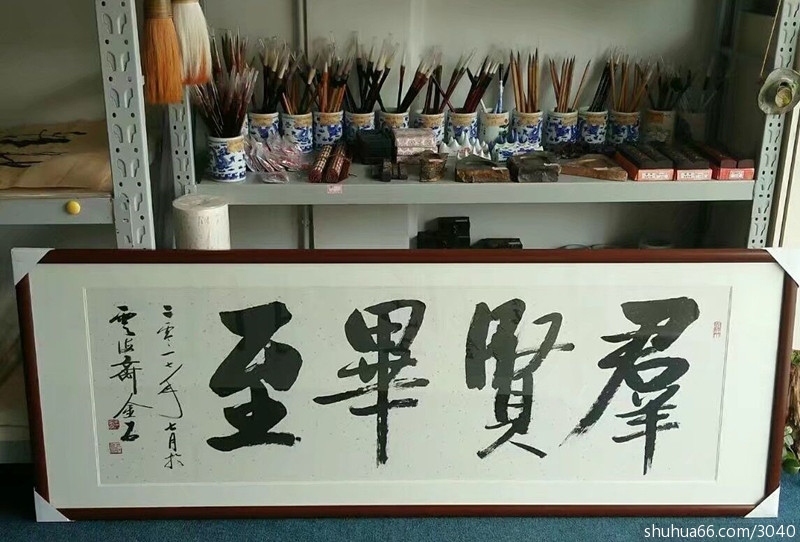 羣賢畢至
二零一七年七月於
雲海齋金石
shuhua66.com/3040